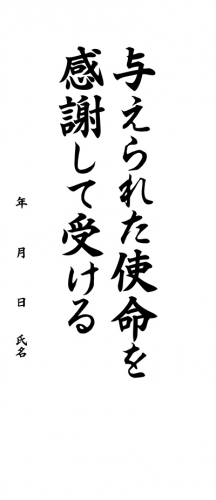 与えられた使命を
感謝して受ける
年 月 日 氏名